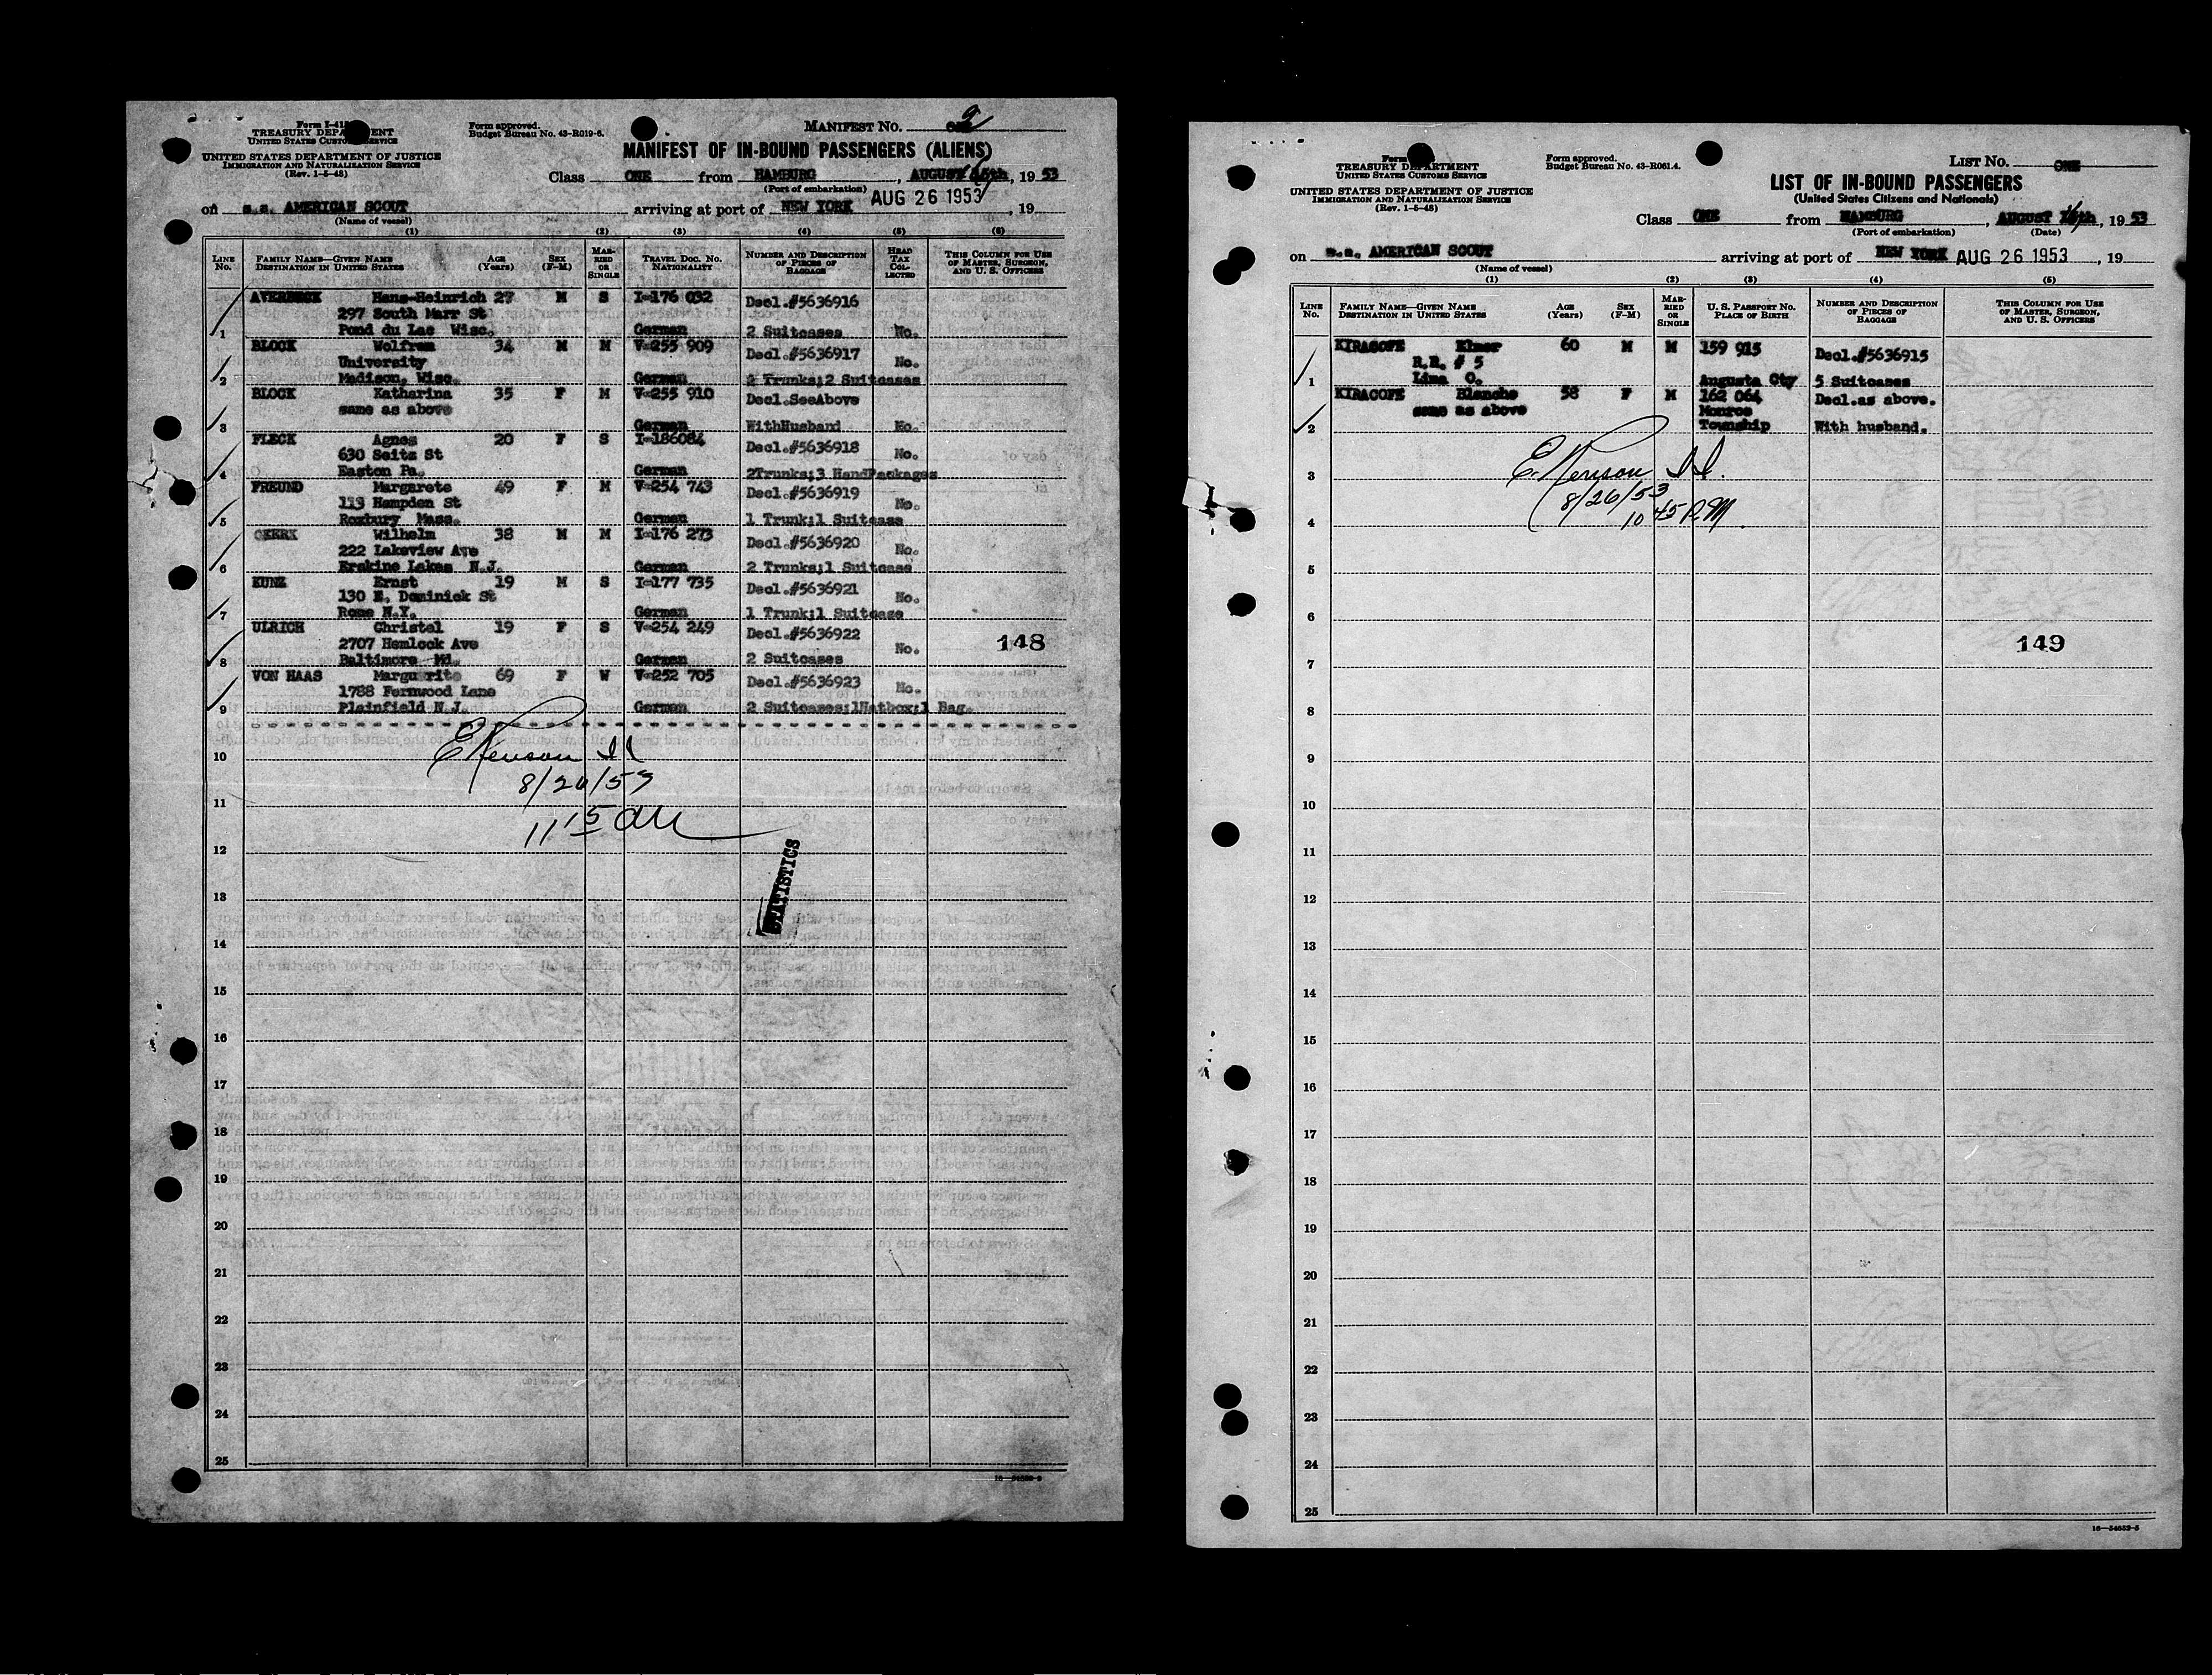 Form I-41
TREASURY DEPARTMENT
UNITED STATES CUSTOMS SERVICE
UNITED STATES DEPARTMENT OF JUSTICE
IMMIGRATION AND NATURALIZATION SERVICE
(Rev. 1-5-48)
Form approved.
Budget Bureau No. 43-R019-6.
MANIFEST NO. ONE 2
MANIFEST OF IN-BOUND PASSENGERS (ALIENS)
Class ONE from HAMBURG, AUGUST th, 19 53
(Port of embarkation)
on s.s. AMERICAN SCOUT arriving at port of NEW YORK AUG 26 1953, 19
(Name of vessel)
(1) (2) (3) (4) (5) (6)
LINE No. FAMILY NAME—GIVEN NAME DESTINATION IN UNITED STATES AGE (Years) SEX (F-M) MARRIED OR SINGLE TRAVEL DOC. NO. NATIONALITY NUMBER AND DESCRIPTION OF PIECES OF BAGGAGE HEAD TAX COLLECTED THIS COLUMN FOR USE OF MASTER, SURGEON, AND U. S. OFFICERS
AVERBECK Hans-Heinrich 27 M S I-176 032 Decl.#5636916
297 South Marr St
1 Fond du Lac Wisc. German 2 Suitcases No.
BLOCK Wolfram 34 M M V-255 909 Decl.#5636917
University No.
2 Madison, Wisc. German 2 Trunks;2 Suitcases
BLOCK Katharina 35 F M V-255 910 Decl.SeeAbove
same as above
3 German WithHusband No.
FLECK Agnes 20 F S I-186084 Decl.#5636918
630 Seitz St No.
4 Easton Pa. German 2Trunks;3 HandPackages
FREUND Margarete 49 F M V-254 743 Decl.#5636919
113 Hampden St No.
5 Roxbury Mass. German 1 Trunk;1 Suitcase
Wilhelm 38 M M I-176 273 Decl.#5636920
222 Lakeview Ave No.
6 Erskine Lakes N.J. German 2 Trunks;1 Suitcase
KUNZ Ernst 19 M S I-177 735 Decl.#5636921
130 E. Dominick St No.
7 Rome N.Y. German 1 Trunk;1 Suitcase
ULRICH Christel 19 F S V-254 249 Decl.#5636922
2707 Hemlock Ave No. 148
8 Baltimore Md. German 2 Suitcases
VON HAAS Marguerite 69 F W V-252 705 Decl.#5636923
1788 Fernwood Lane No.
9 Plainfield N.J. German 2 Suitcases;1Hatbox;1 Bag.
10
8/26/53
11
11 15 AM
12
STATISTICS
13
14
15
16
17
18
19
20
21
22
23
24
25
Form
TREASURY DEPARTMENT
UNITED STATES CUSTOMS SERVICE
UNITED STATES DEPARTMENT OF JUSTICE
IMMIGRATION AND NATURALIZATION SERVICE
(Rev. 1-5-48)
Form approved.
Budget Bureau No. 43-R061.4.
LIST NO. ONE
LIST OF IN-BOUND PASSENGERS
(United States Citizens and Nationals)
Class ONE from HAMBURG, AUGUST th, 19 53
(Port of embarkation) (Date)
on s.s. AMERICAN SCOUT arriving at port of NEW YORK AUG 26 1953, 19
(Name of vessel)
(1) (2) (3) (4) (5)
LINE No. FAMILY NAME—GIVEN NAME DESTINATION IN UNITED STATES AGE (Years) SEX (F-M) MARRIED OR SINGLE U. S. PASSPORT NO. PLACE OF BIRTH NUMBER AND DESCRIPTION OF PIECES OF BAGGAGE THIS COLUMN FOR USE OF MASTER, SURGEON, AND U. S. OFFICERS
KIRACOFE Elmer 60 M M 159 915 Decl.#5636915
R.R. # 5
1 Lima O. Augusta Cty 5 Suitcases
KIRACOFE Blanche 58 F M 162 064 Decl.as above.
same as above Monroe
2 Township With husband.
3
8/26/53
4
10 45 P.M.
5
6
149
7
8
9
10
11
12
13
14
15
16
17
18
19
20
21
22
23
24
25
16—54653-5